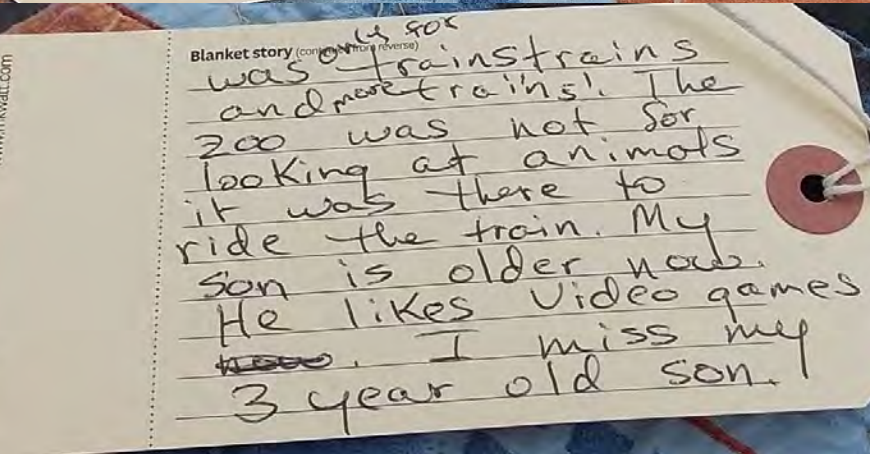 Blanket story (continued from reverse)
was only for
trainstrains
and more trains! The
200 was not for
looking at animals
it was there to
ride the train. My
son is older now.
He likes video games
now. I miss my
3 year old son.